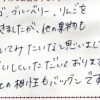 、ブルーベリー、りんごを
きましたが、他の果物も
てみたいなと思いまし
いしていただいておりま
との相性もバツグンです